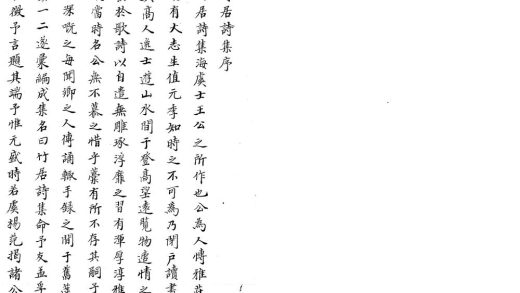 居詩集序
居詩集海虞士王公之所作也公為人慱雅莊
有大志生值元季知時之不可為乃閉戶讀書
高人逸士遊山水間于登高望遠覽物遣情之
於歌詩以自遣無雕琢浮靡之習有渾厚淳雅
當時名公無不慕之惜乎藁有所不存其嗣子
深嘅之每聞鄉之人傳誦輒手錄之間于舊藁
一二遂彙編成集名曰竹居詩集命予友孟孚
徵予言題其端予惟元盛時若虞楊范揭諸公